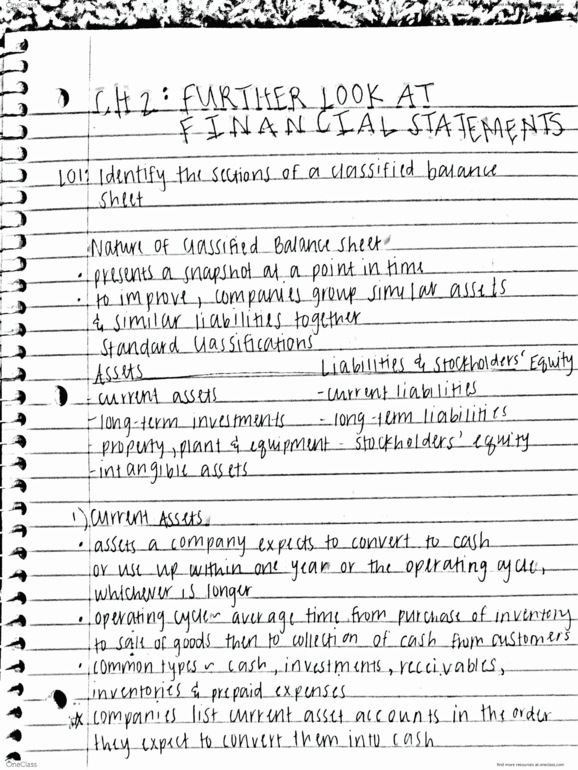 CH 2: FURTHER LOOK AT
FINANCIAL STATEMENTS
LO1: Identify the sections of a classified balance
sheet
Nature of Classified Balance Sheet
• presents a snapshot at a point in time
• to improve, companies group similar assets
& similar liabilities together
Standard Classifications
Assets Liabilities & Stockholders' Equity
- current assets - current liabilities
- long-term investments - long-term liabilities
- property, plant & equipment - stockholders' equity
- intangible assets
1) Current Assets
• assets a company expects to convert to cash
or use up within one year or the operating cycle,
whichever is longer
• operating cycle ~ average time from purchase of inventory
to sale of goods then to collection of cash from customers
• common types ~ cash, investments, receivables,
inventories & prepaid expenses
* companies list current asset accounts in the order
they expect to convert them into cash
OneClass
find more resources at oneclass.com